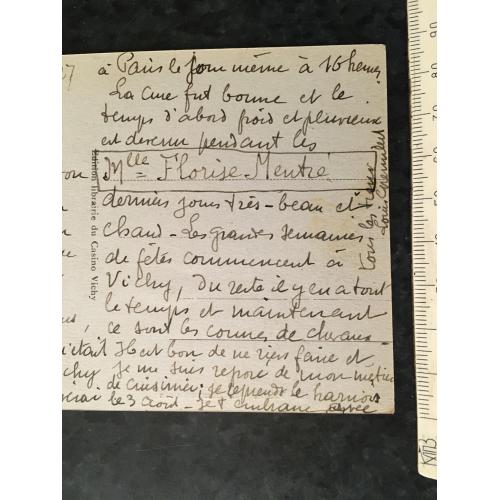 27
à Paris le jour même à 16 heures
La cure fut bonne et le
temps d'abord froid et pluvieux
est devenu pendant les
Mlle Florise Mentré
derniers jours très-beau et
chaud - Les grandes semaines
de fêtes commencent à
Vichy, du reste il y en a tout
le temps et maintenant
ce sont les courses de chevaux
était Il est bon de ne rien faire et
chy je me suis reposé de mon métier
de cuisinier; je reprends le harnois
le 3 août - Je t'embrasse
Edition librairie du Casino Vichy
tous les
Louis
90
80
70
60
50
40
30
20
10